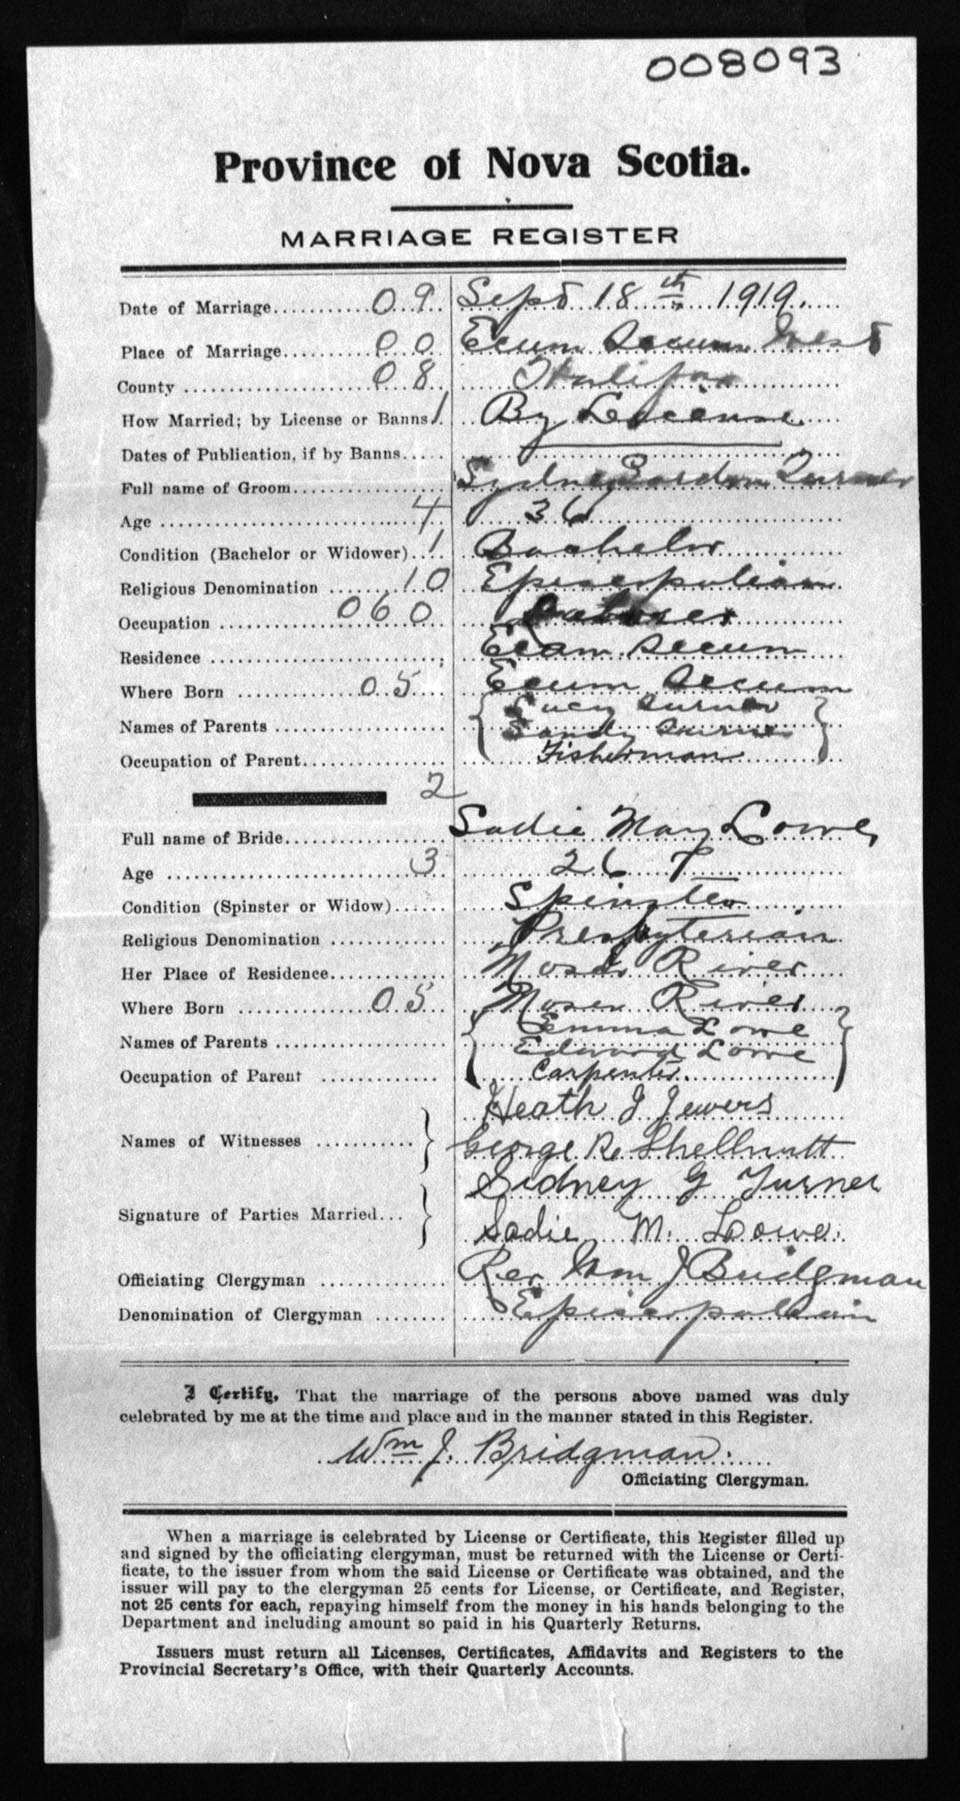 008093
Province of Nova Scotia.
MARRIAGE REGISTER
Date of Marriage........... 09. Sept 18th 1919.
Place of Marriage.......... 00 Ecum Secum West
County .................... 08 Halifax
How Married; by License or Banns 1. By License
Dates of Publication, if by Banns.....
Full name of Groom................. Sydney Gordon Turner
Age ....................... 4 36
Condition (Bachelor or Widower).. 1 Bachelor
Religious Denomination ...... 10 Episcopalian
Occupation ............. 060 Labourer
Residence ....................... Ecam Secum
Where Born ............ 05 Ecum Secum
Names of Parents .................. { Lucy Turner
Sandy Turner }
Occupation of Parent................. Fisherman
2
Full name of Bride................. Sadie May Lowe,
Age ...................... 3 26
Condition (Spinster or Widow)...... Spinster
Religious Denomination ............ Presbyterian
Her Place of Residence............. Mosers River
Where Born ............ 05 Moser River
Names of Parents .................. { Emma Lowe
Edward Lowe }
Occupation of Parent ............. Carpenter
Heath J Jewers
Names of Witnesses ........... }
George R. Shellnutt
Sidney G Turner
Signature of Parties Married... }
Sadie M. Lowe.
Officiating Clergyman ............. Rev Wm J Bridgman
Denomination of Clergyman ........ Episcopalian
I Certify, That the marriage of the persons above named was duly
celebrated by me at the time and place and in the manner stated in this Register.
Wm J. Bridgman.
Officiating Clergyman.
When a marriage is celebrated by License or Certificate, this Register filled up
and signed by the officiating clergyman, must be returned with the License or Certi-
ficate, to the issuer from whom the said License or Certificate was obtained, and the
issuer will pay to the clergyman 25 cents for License, or Certificate, and Register,
not 25 cents for each, repaying himself from the money in his hands belonging to the
Department and including amount so paid in his Quarterly Returns.
Issuers must return all Licenses, Certificates, Affidavits and Registers to the
Provincial Secretary's Office, with their Quarterly Accounts.